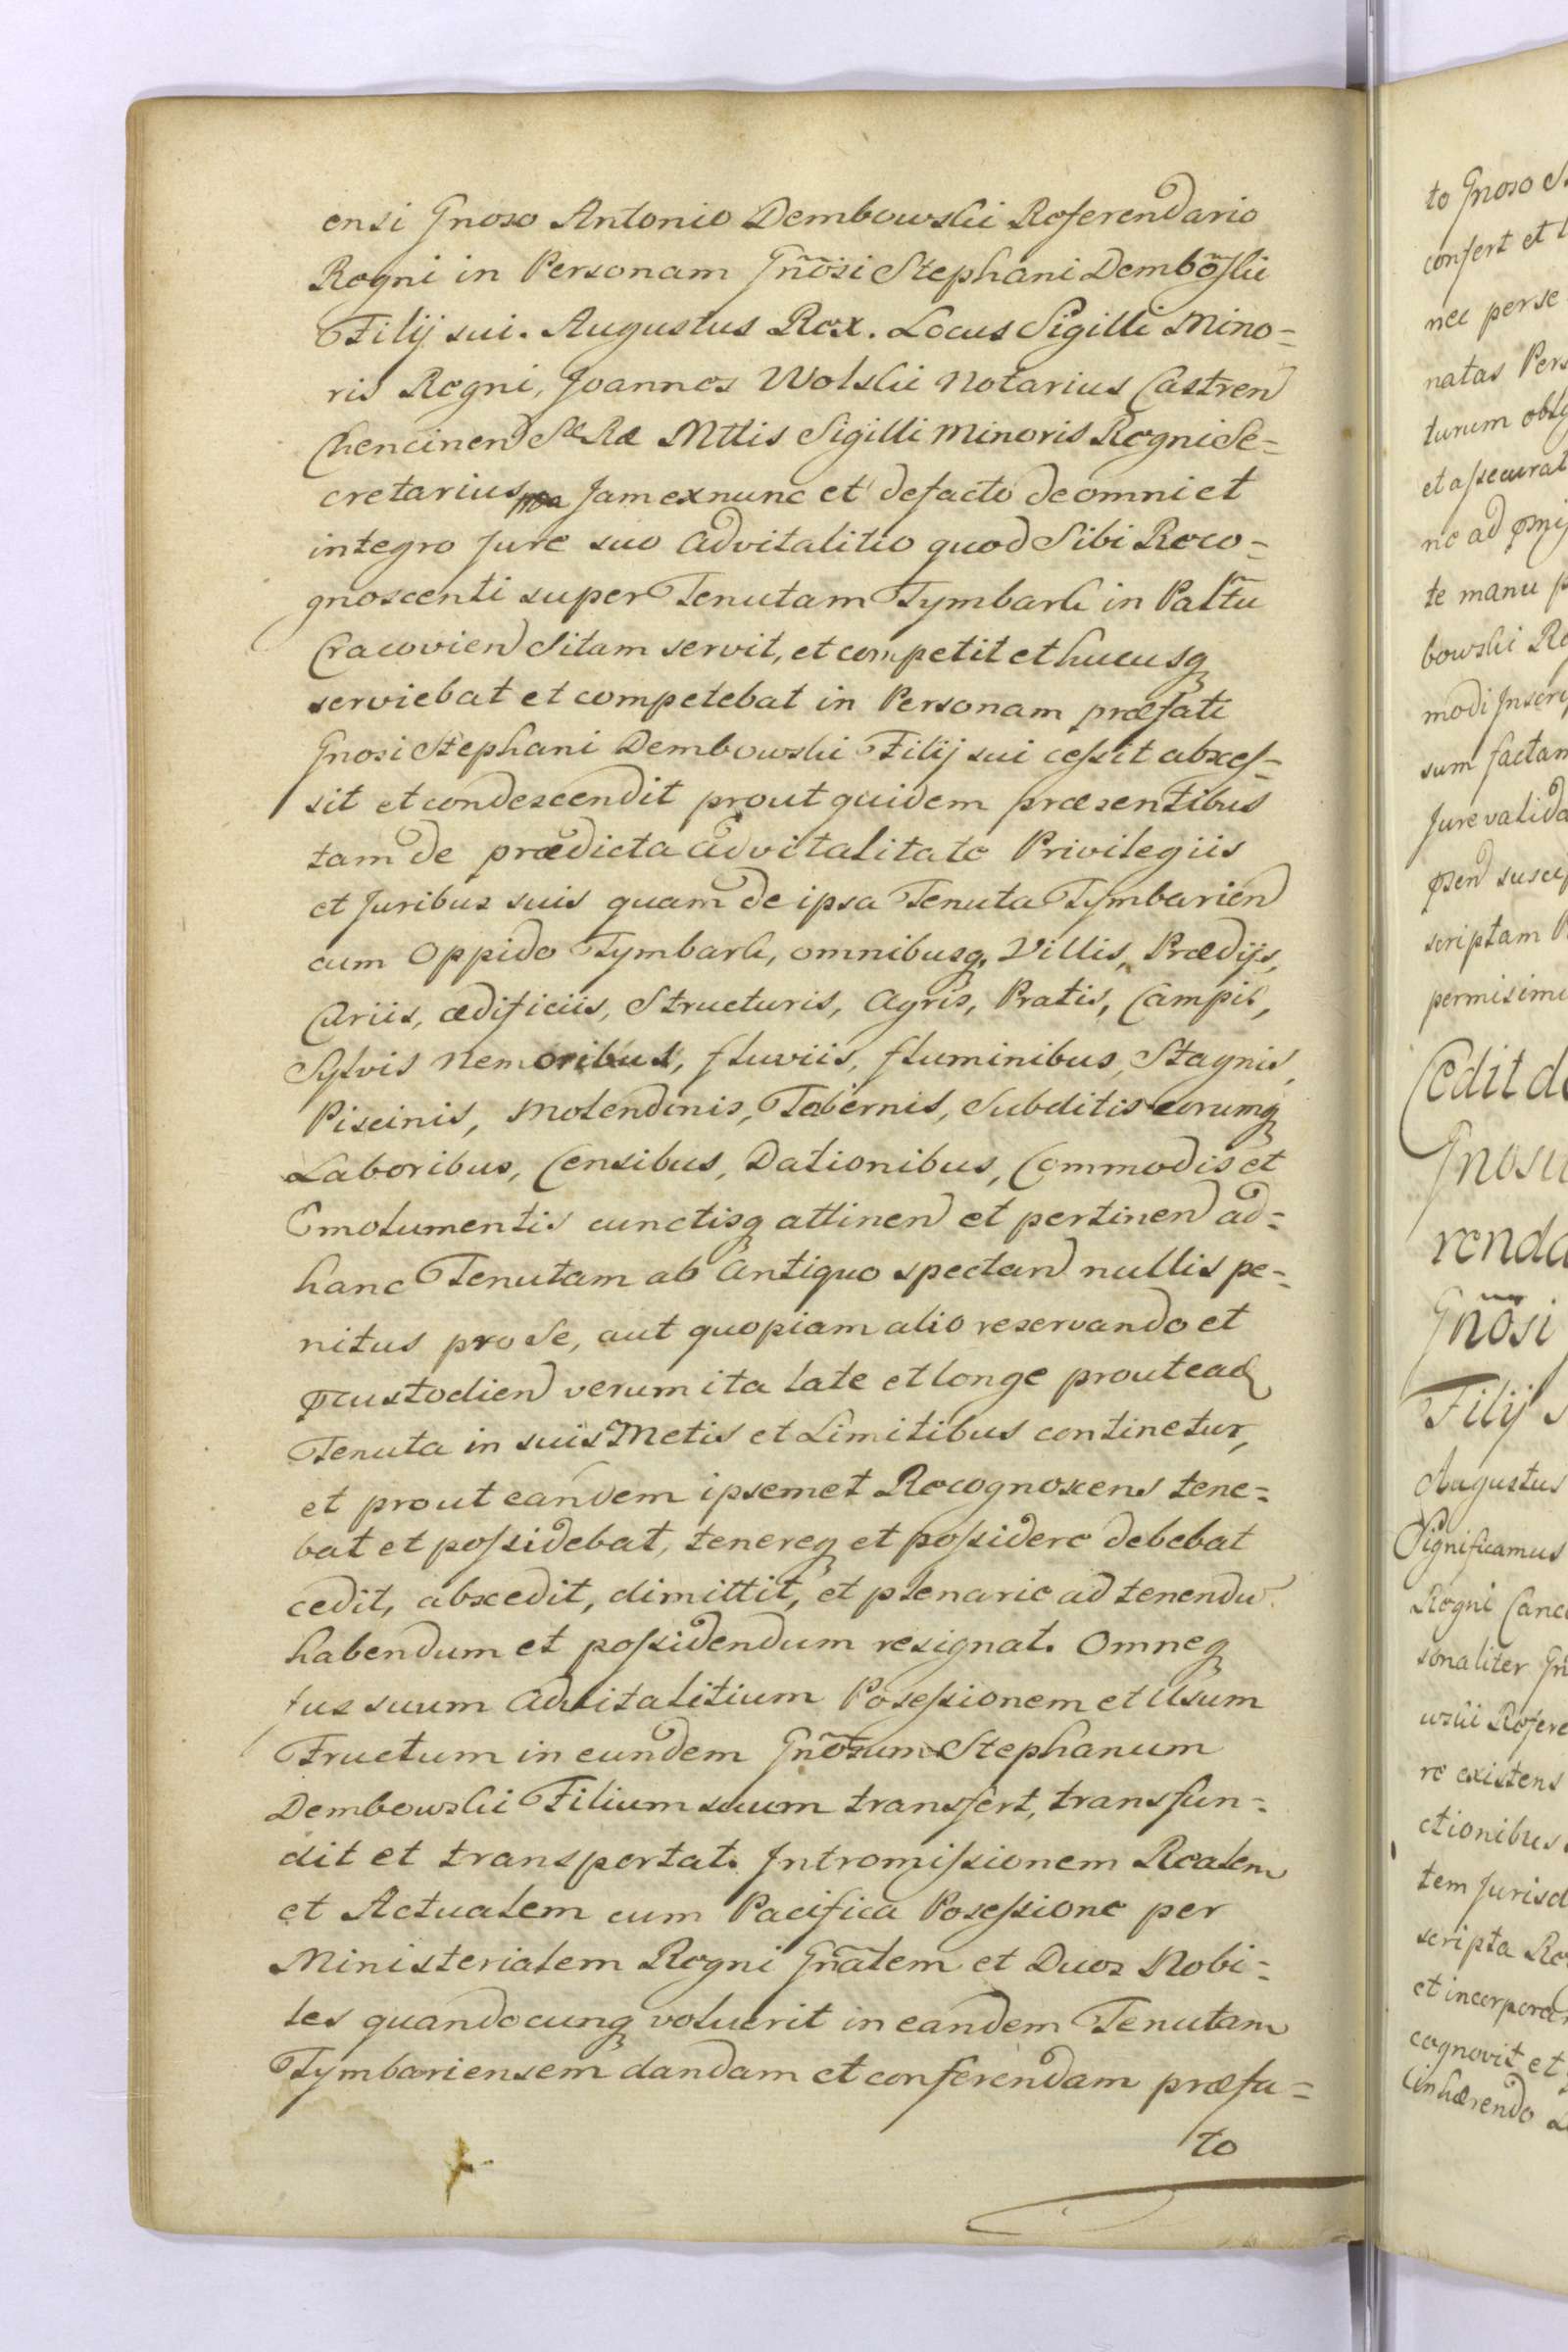 ensi Gnoso Antonio Dembowski Referendario
Regni in Personam Gnõsi Stephani Dembõski
Filij sui. Augustus Rex. Locus Sigilli Mino=
ris Regni, Joannes Wolski Notarius Castren
Chencinen SæRæ Mttis Sigilli Minoris Regni Se=
cretarius mpa Jam exnunc et defacto de omni et
integro Jure suo advitalitio quod Sibi Reco=
gnoscenti super Tenutam Tymbark in Paltũ
Cracovien Sitam servit, et competit et hucusq
serviebat et competebat in Personam præfati
Gnosi Stephani Dembowski Filij sui cessit absces=
sit et condescendit prout quidem præsentibus
tam de prædicta advitalitate Privilegiis
et Juribus suis quam de ipsa Tenuta Tymbarien
cum Oppido Tymbark, omnibusq, Villis, Prædijs,
Curiis, ædificiis, Structuris, Agris, Pratis, Campis,
Sylvis Nemoribus, fluviis, fluminibus, Stagnis,
Piscinis, Molendinis, Tabernis, Subditis eorumq
Laboribus, Censibus, Dationibus, Commodis et
Emolumentis cunctisq attinen et pertinen ad=
hanc Tenutam ab Antiquo spectan nullis pe=
nitus pro Se, aut quopiam alio reservando et
præcustodien verum ita late et longe prout ead
Tenuta in suis Metis et Limitibus continetur,
et prout eandem ipsemet Recognoscens tene=
bat et possidebat, tenereq et possidere debebat
cedit, abscedit, dimittit, et plenarie ad tenendũ
habendum et possidendum resignat. Omneq
Jus suum Advitalitium Possessionem et Usum
Fructum in eundem Gnõsum Stephanum
Dembowski Filium suum transfert, transfun=
dit et transportat. Intromissionem Realem
et Actualem cum Pacifica Posessione per
Ministerialem Regni Gnãlem et Duos Nobi=
les quandocunq voluerit in eandem Tenutam
Tymbariensem dandam et conferendam præfa=
to
to Gnoso S
confert et
nec per se
natas Pers
turum obl
et assecurat
ne ad
te manu p
bowski Re
modi Inscri
sum factam
Jure valido
susci
scriptam
permisimus
Cedit de
Gnosu
renda
Gnõsi
Filij s
Augustus
Significamus
Regni Canc
sonaliter Gn
wski Refere
re existens
ctionibus
tem Jurisd
scripta Re
et incorpora
cognovit et
inhærendo